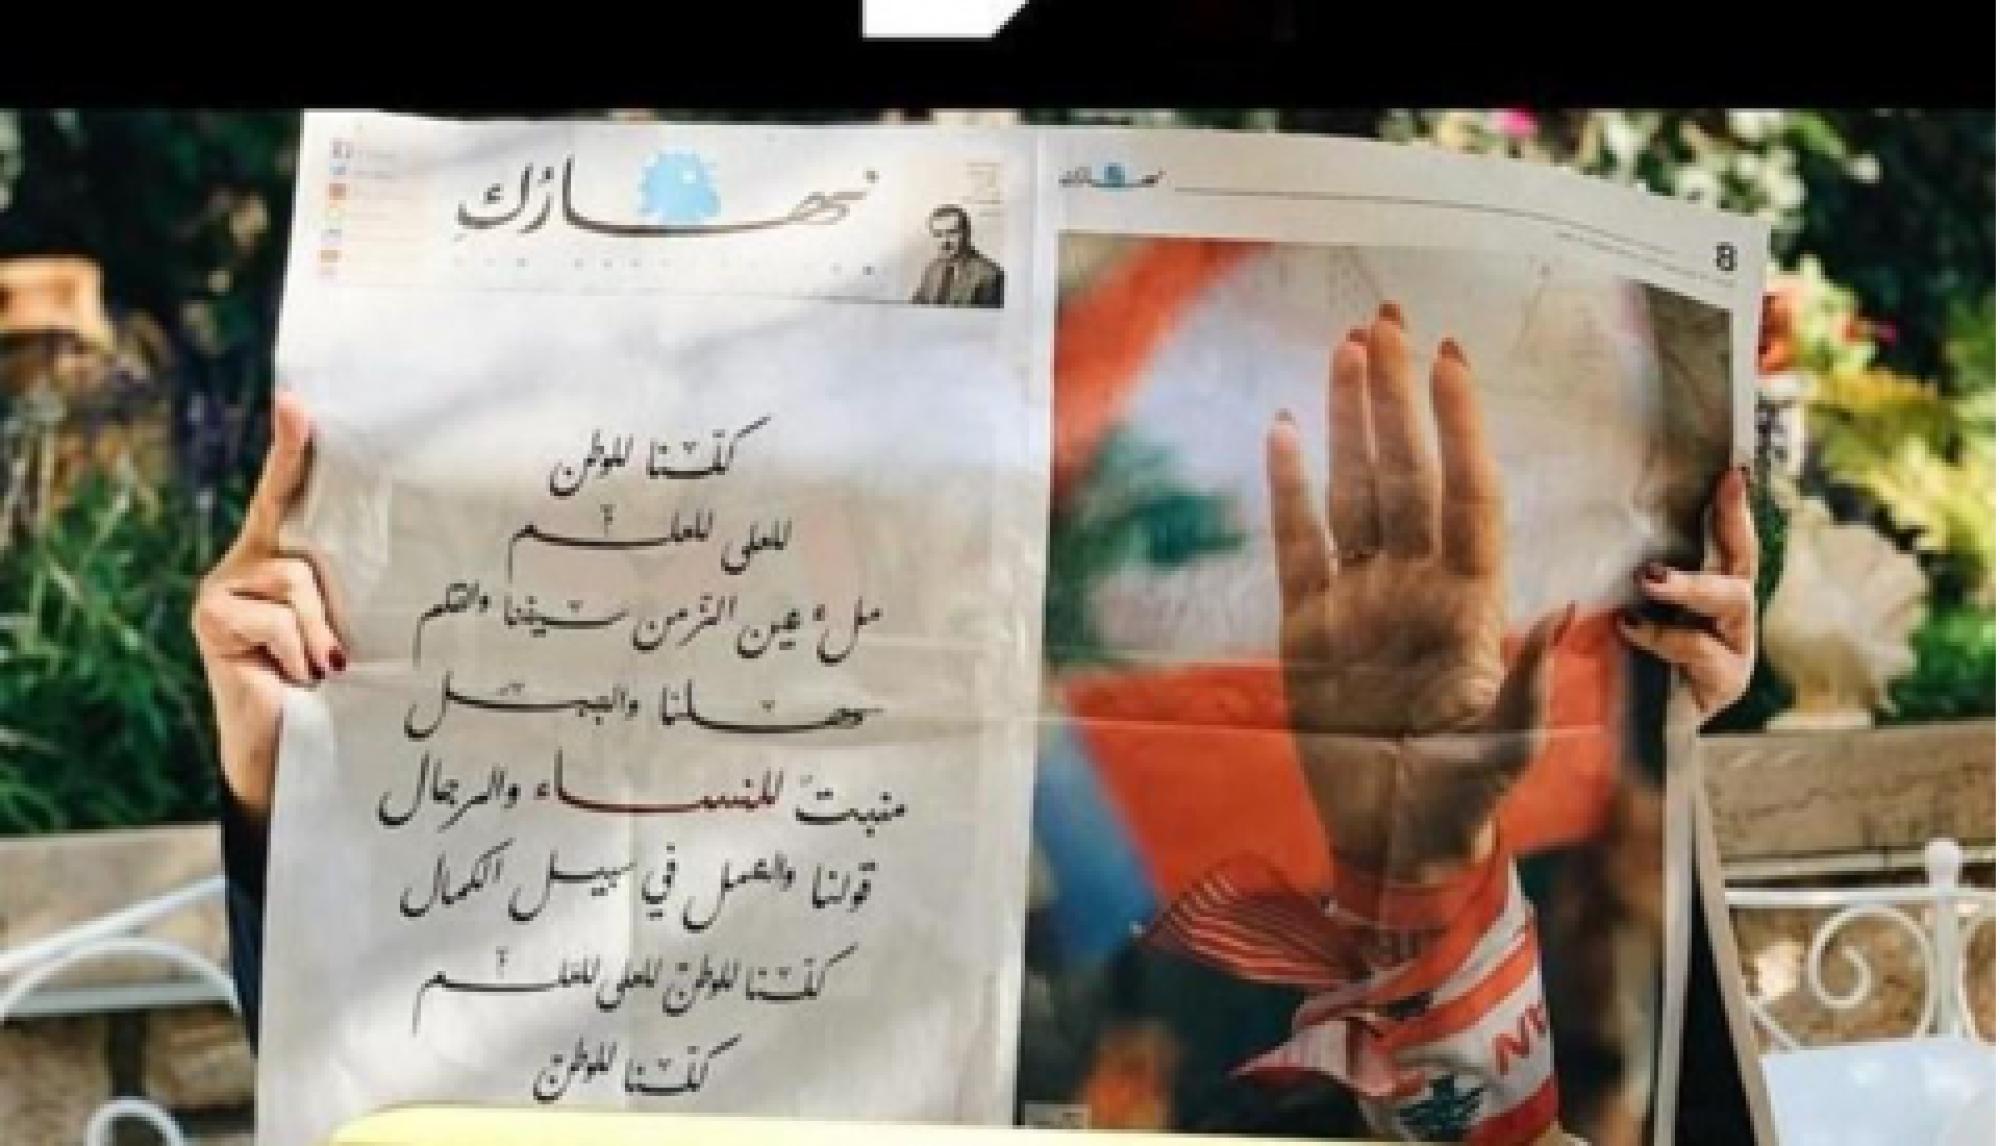 نهارُكِ
كلّنا للوطن
للعلى للعلم
ملء عين الزّمن سيفنا والقلم
سهلنا والجبل
منبتٌ للنساء والرجال
قولنا والعمل في سبيل الكمال
كلّنا للوطن للعلى للعلم
كلّنا للوطن
نهارك
8